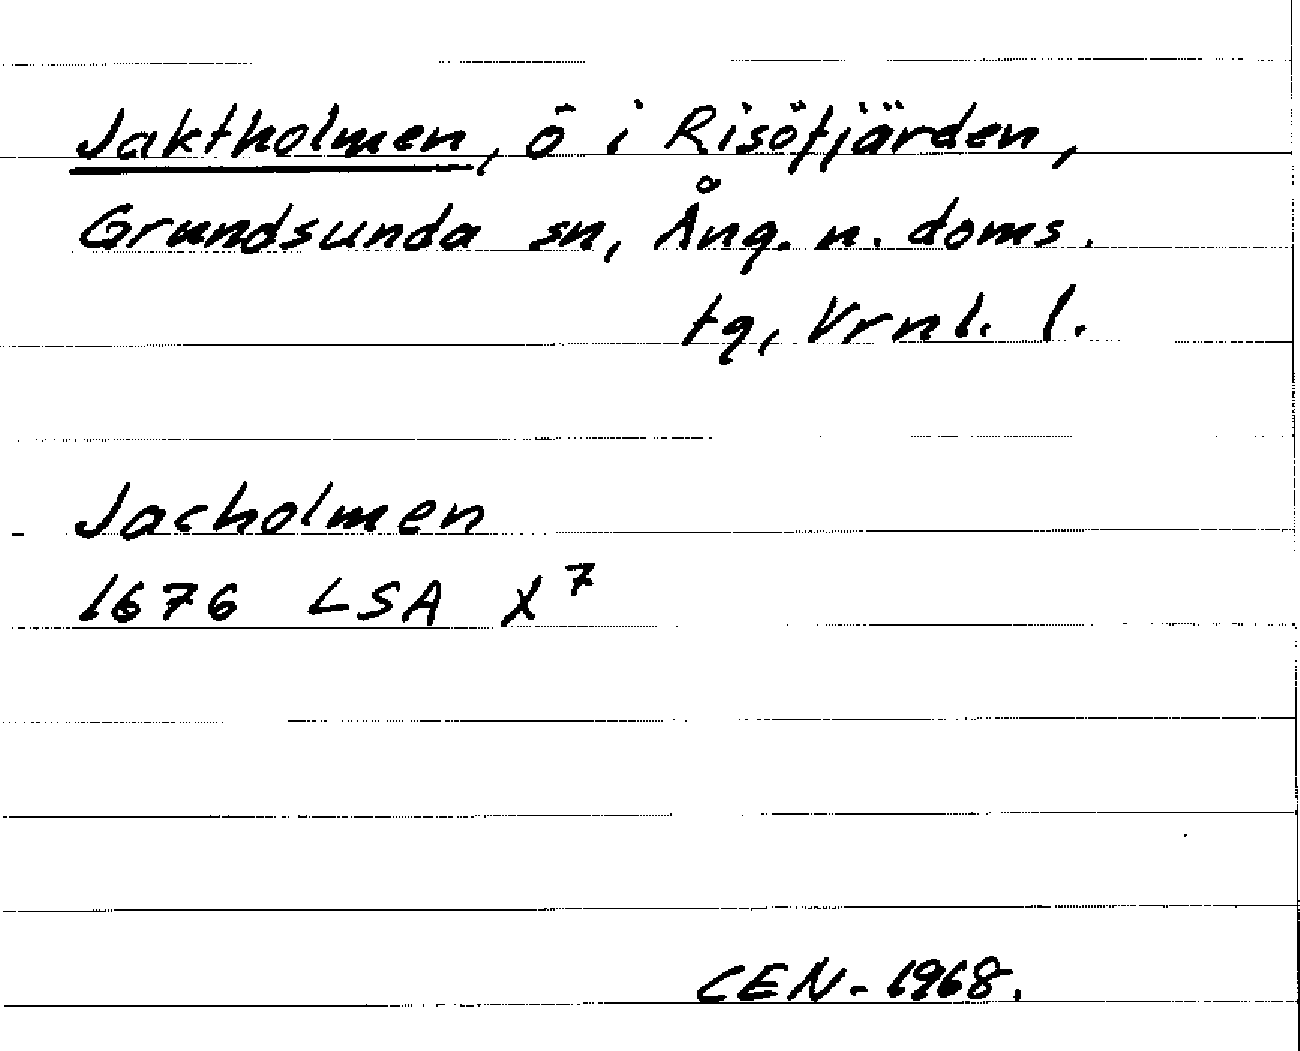 Jaktholmen, ö i Risöfjärden,
Grundsunda sn, Ång. n. doms.
tg, Vrnl. l.
Jacholmen
1676 LSA X 7
CEN - 1968.